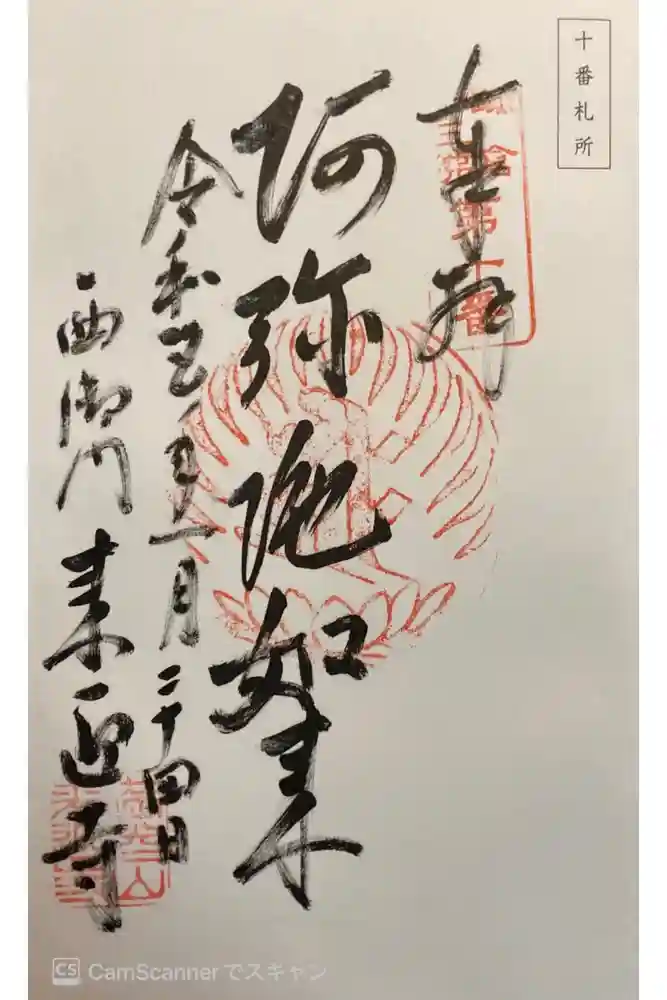 十番札所
奉拝
第十番
阿弥陀如来
令和五年一月二十四日
西御門 来迎寺
CamScannerでスキャン